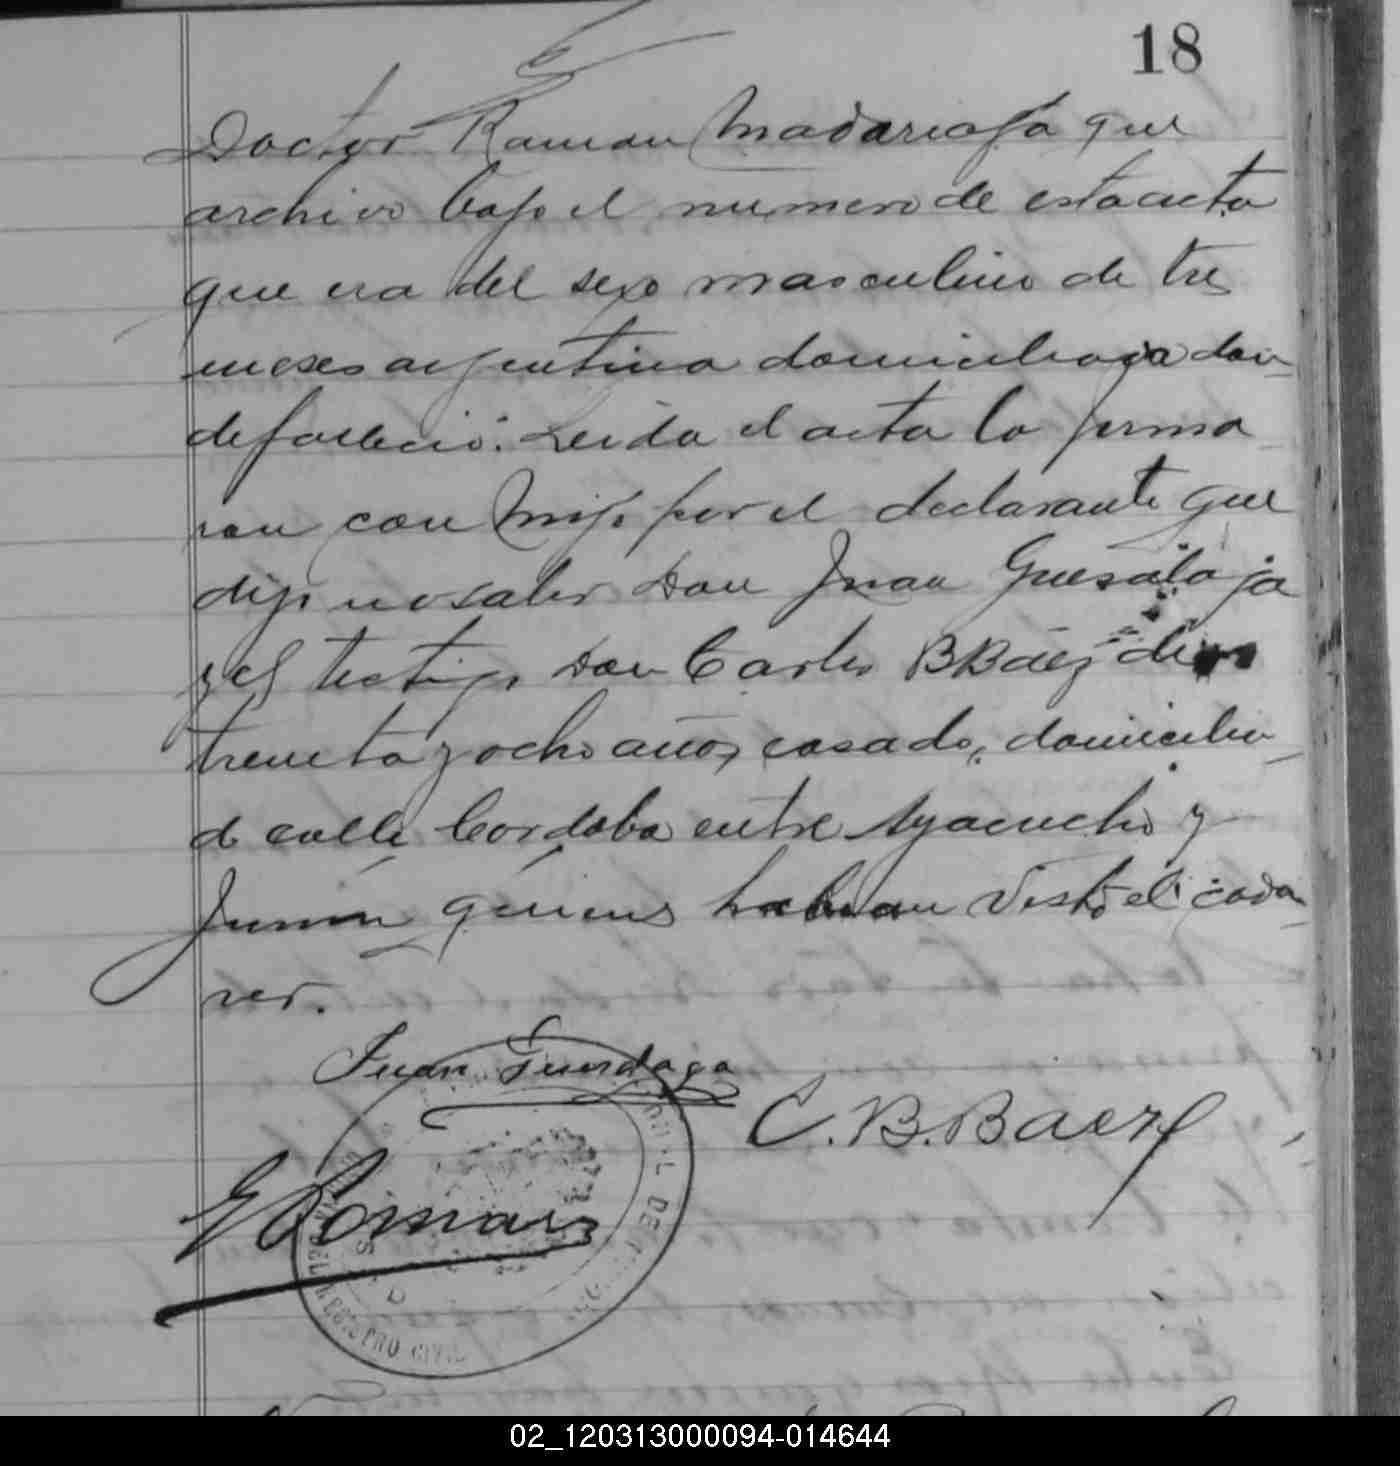 18
Doctor Ramon Madariaga que
archivo bajo el numero de esta acta
que era del sexo masculino de tres
meses argentino domiciliado don-
de falleció. Leida el acta la firma
ron con migo por el declarante que
dijo no saber Don Juan
y el testigo Don Carlos B Báez de
treinta y ocho años, casado, domicilia-
do calle Cordoba entre Ayacucho y
Junin quienes habian visto el cada-
ver.
Juan
C. B. Baez
REGISTRO CIVIL
02_120313000094-014644